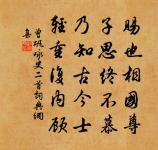 賜也相國尊
子思終不慕
乃知古今士
輕重復內顧
曾鞏詠史二首詞典網
集